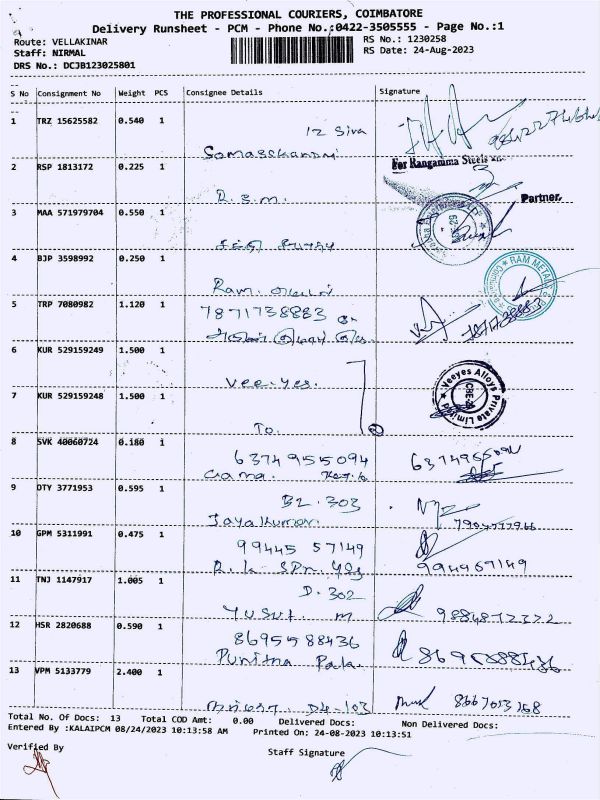 THE PROFESSIONAL COURIERS, COIMBATORE
Delivery Runsheet - PCM - Phone No.:0422-3505555 - Page No.:1
Route: VELLAKINAR
RS No.: 1230258
Staff: NIRMAL
RS Date: 24-Aug-2023
DRS No.: DCJB123025801
S No Consignment No Weight PCS Consignee Details Signature
1 TRZ 15625582 0.540 1
12 Siva
2 RSP 1813172 0.225 1
For Rangamma Steels
R.S.M.
Partner.
3 MAA 571979704 0.550 1
4 BJP 3598992 0.250 1
RAM METALS
Ram.
5 TRP 7080982 1.120 1
7871738883
7871738883
6 KUR 529159249 1.500 1
Vee.Yes.
Veeyes Alloys Private Limited
CBE-29
7 KUR 529159248 1.500 1
To.
8 SVK 40060724 0.180 1
6374955094
6374955094
9 DTY 3771953 0.595 1
B2.303
Jayakumar.
10 GPM 5311991 0.475 1
99445 57149
11 TNJ 1147917 1.005 1
D.302
Yusuf. M
12 HSR 2820688 0.590 1
8695588436
8695588436
13 VPM 5133779 2.400 1
D4-103
Total No. Of Docs: 13 Total COD Amt: 0.00 Delivered Docs: Non Delivered Docs:
Entered By :KALAIPCM 08/24/2023 10:13:58 AM Printed On: 24-08-2023 10:13:51
Verified By
Staff Signature